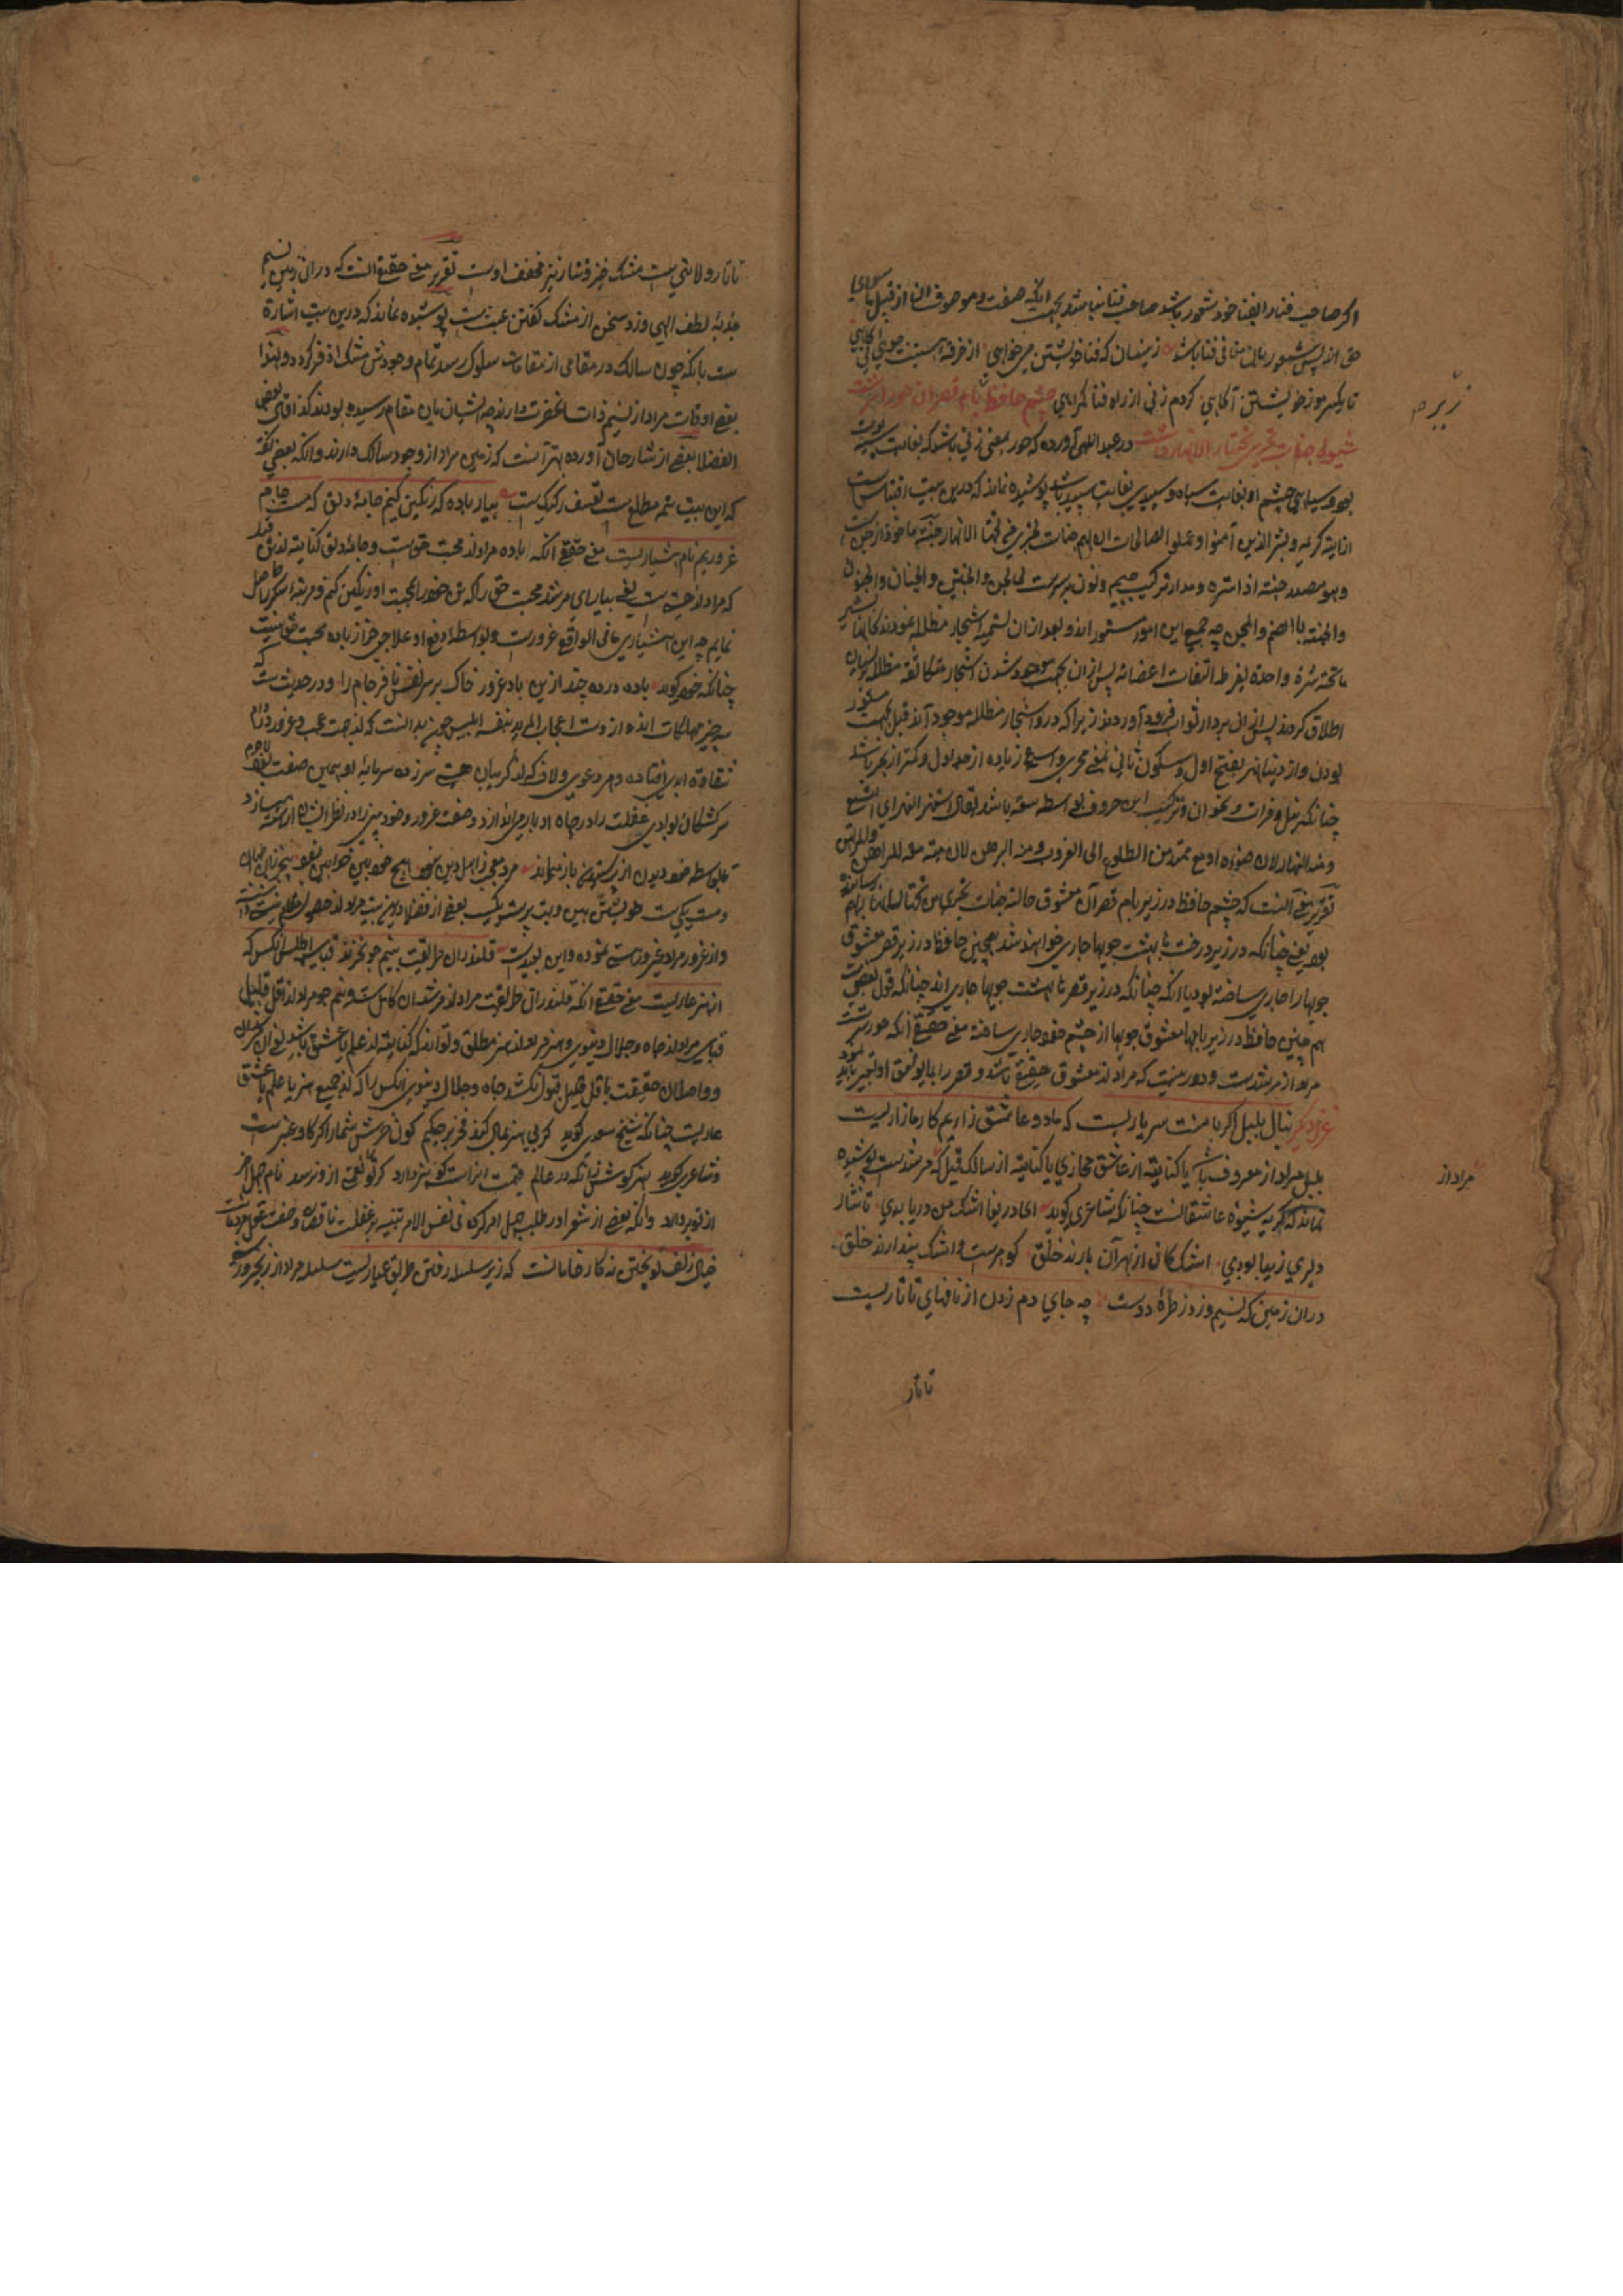 اگر صاحب فنا را بفنا خود شعور باشد صاحب فنا نباشد بجهت آنکه صفت و موصوف فنا از قبیل ما سوای
حق اند پس شعور بآن منافی فنا باشد زینسان که فنا خویشتن میخواهی از خرمن هستیت جوی کی کاهی
تا یکسر مو ز خویشتن آگاهی گر دم زنی از راه فنا گمراهی چشم حافظ زیر بام قصر آن حوری سرشت
زیر صح
شیوه جنات تجری تحتها الانهار داشت در عبد اللهی آورده که حور بمعنی زنی باشد که بغایت
بود و سیاهی چشم او بغایت سیاه و سپیدی بغایت سپید باشد پوشیده نماند که درین بیت اقتباس است
از آیة کریمه و بشر الذین آمنوا و عملوا الصالحات ان لهم جنات تجری من تحتها الانهار جنة ماخوذ از جن است
و هو مصدر جنه اذا ستره و مدار ترکیب جیم و نون بر ستر است کالجن و الجنین و الجنان و الجنون
والجنة بالضم و المجن چه جمیع این امور مستور اند و بعد ازان تسمیه اشجار مظلله نمودند کانها تستر
ما تحته سترة واحدة لفرط التفات اغصانه پس ازان بجهت موجود شدن اشجار متکاثفه مظلله بر بستان
اطلاق کردند پس ازان بر دار ثواب فرود آوردند زیرا که درو اشجار مظلله موجود اند قیل بجهت مستور
بودن و از دنیا نهر بفتح اول و سکون ثانی بمعنی مجری واسع زیاده از جدول و کمتر از بحر باشد
چنانکه نیل و فرات و ترکیب این حروف بواسطه سعة باشد یقال استنهر النهر ای اتسع
و منه النهار لان ضوءه اوسع ممتد من الطلوع الی الغروب و منه
تقریر معنی آنست که چشم حافظ در زیر بام قصر آن معشوق حالت جنات تجری من تحتها الانهار
بود یعنی چنانکه در زیر درخت بهشت جویها جاری خواهند شد همچنین حافظ در زیر قصر معشوق
جویها را جاری ساخته بود یا آنکه چنانکه در زیر قصرهای بهشت جویها جاری اند چنانکه قول بعضی است
هم چنین حافظ در زیر بامها معشوق جویها از چشم خود جاری ساخته معنی حقیقی آنکه حور سرشت
مراد از مرشدست و دور نیست که مراد از معشوق حقیقی باشد و قصر را بما یوافق او تعبیر باید نمود
غزل دیگر بنال بلبل اگر با منت سر یاریست که ما دو عاشق زاریم کار ما زاریست
بلبل مراد از معروف باشد یا کنایة از عاشق مجازی یا کنایة از سالک قیل که مرشدست پوشیده
مراد از
نماند که گریه شیوه عاشقانست چنانکه شاعری گوید ای دریغا اشک من دریا بدی تا نثار
دلبری زیبا بودی اشک کان از بهر آن بارند خلق گوهرست و اشک پندارند خلق
دران زمین که نسیم وزد ز طره دوست چه جای دم زدن از نافهای تاتاریست
تاتار
تاتار ولایتی ست مشک خیز و تتار نیز مخفف اوست تقریر معنی حقیقی آنست که دران زمین نسیم
جذبه لطف الهی وزد سخن از مشک گفتن عبث ست پوشیده نماند که درین بیت اشارة
ست بانکه چون سالک در مقامی از مقامات سلوک رسد تمام وجودش مشک اذفر گردد و لهذا
بعضی اوقات مراد از نسیم ذات آنحضرت دارند چه ایشان باین مقام رسیده بودند کذا قال بعض
الفضلا بعضی از شارحان آورده بهتر آنست که زمین مراد از وجود سالک دارند و آنکه بعضی گفته
که این بیت تتمه مطلع ست تعسف رکیک ست بیار باده که رنگین کنیم جامه دلق که مست جام
غروریم نام هشیاریست معنی حقیقی آنکه باده مراد از محبت حق ست و جامه دلق کنایة از
که مراد از هستی ست یعنی بیار ای مرشد محبت حق را که من خود را بمحبت او رنگین کنم و مرتبه سکر حاصل
نمایم چه این هشیاری ما فی الواقع غرورست و بواسطه دفع او علاجی جز از باده محبت حق نیست
چنانکه خود گوید باده درده چند ازین باد غرور خاک بر سر نفس نافرجام را و در حدیث ست که
سه چیز مهلکات اند و از وست اعجاب المرء بنفسه ابلیس چون بدانست که از جهت عجب و غرور دام
شقاوة ابدی افتاده و هر دعوی و لاف که از گریبان هستی سرزده سرمایه او همین صفت
سرگشتگان بوادی غفلت را در چاه ادبار می اندازد و صفت غرور و خود بینی را در نظر ایشان آراسته میسازد
تا بواسطه خود دیدن از بازماند مرد معجب ز اهل دین نبود هیچ خود بین خدای بین نبود
و مست یکی ست خویشتن بین و بت پرست یکی بعضی از فضلا درین بیت مراد از
و از غرور مراد غیر و مست نموده و این بعیدست قلندران طریقت بنیم جو نخرند قبای اطلس آنکس که
از هنر عاریست معنی حقیقی آنکه قلندران طریقت مراد از مرشدان کامل ست و نیم جو مراد از اقل قلیل
قبا مراد از جاه و جلال دنیوی و هنر مراد از هنر مطلق و تواند که کنایة از علم یا عشق باشد یعنی
و واصلان حقیقت باقل قلیل قبول نکنند جاه و جلال دنیوی آنکس را که از جمیع هنر یا علم یا عشق
عاریست چنانکه شیخ سعدی گوید گر بی هنر بمال کند فخر بر حکیم کون خرش شمار اگر گاو عنبرست
و شاعری گوید بهنر کوش زانکه در عالم قیمت آنراست کو هنر دارد
از تو بردارد و آنکه بعضی از شعرا در طلب جهل امر کرده فی نفس الامر تنبیه بر غفلت ناقصان
خیال زلف تو پختن نه کار خامانست که زیر سلسله رفتن طریق عیاریست سلسله مراد از زنجیر و